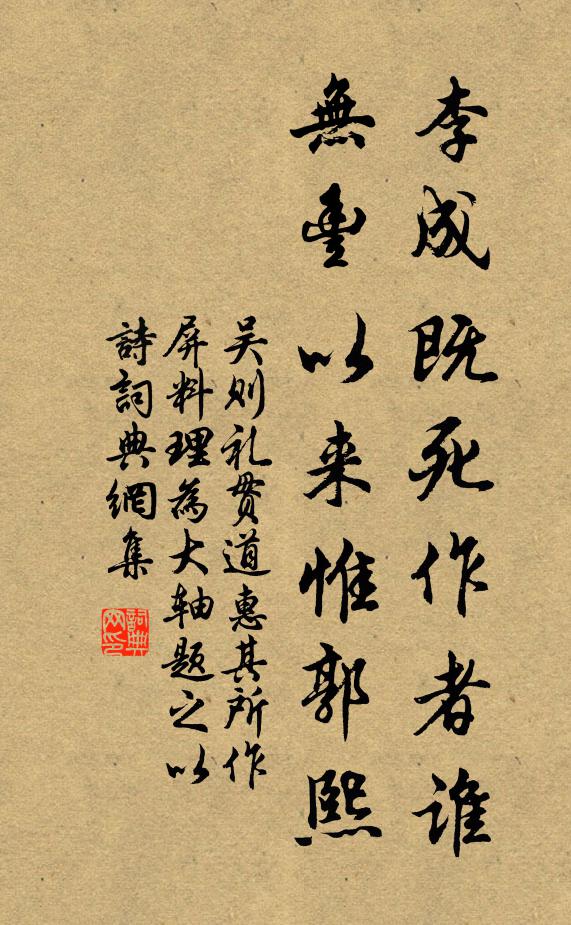 李成既死作者谁
無豊以来惟郭熙
吴则礼贯道惠其所作
屏料理為大轴题之以
詩詞典網集
詞典
网印